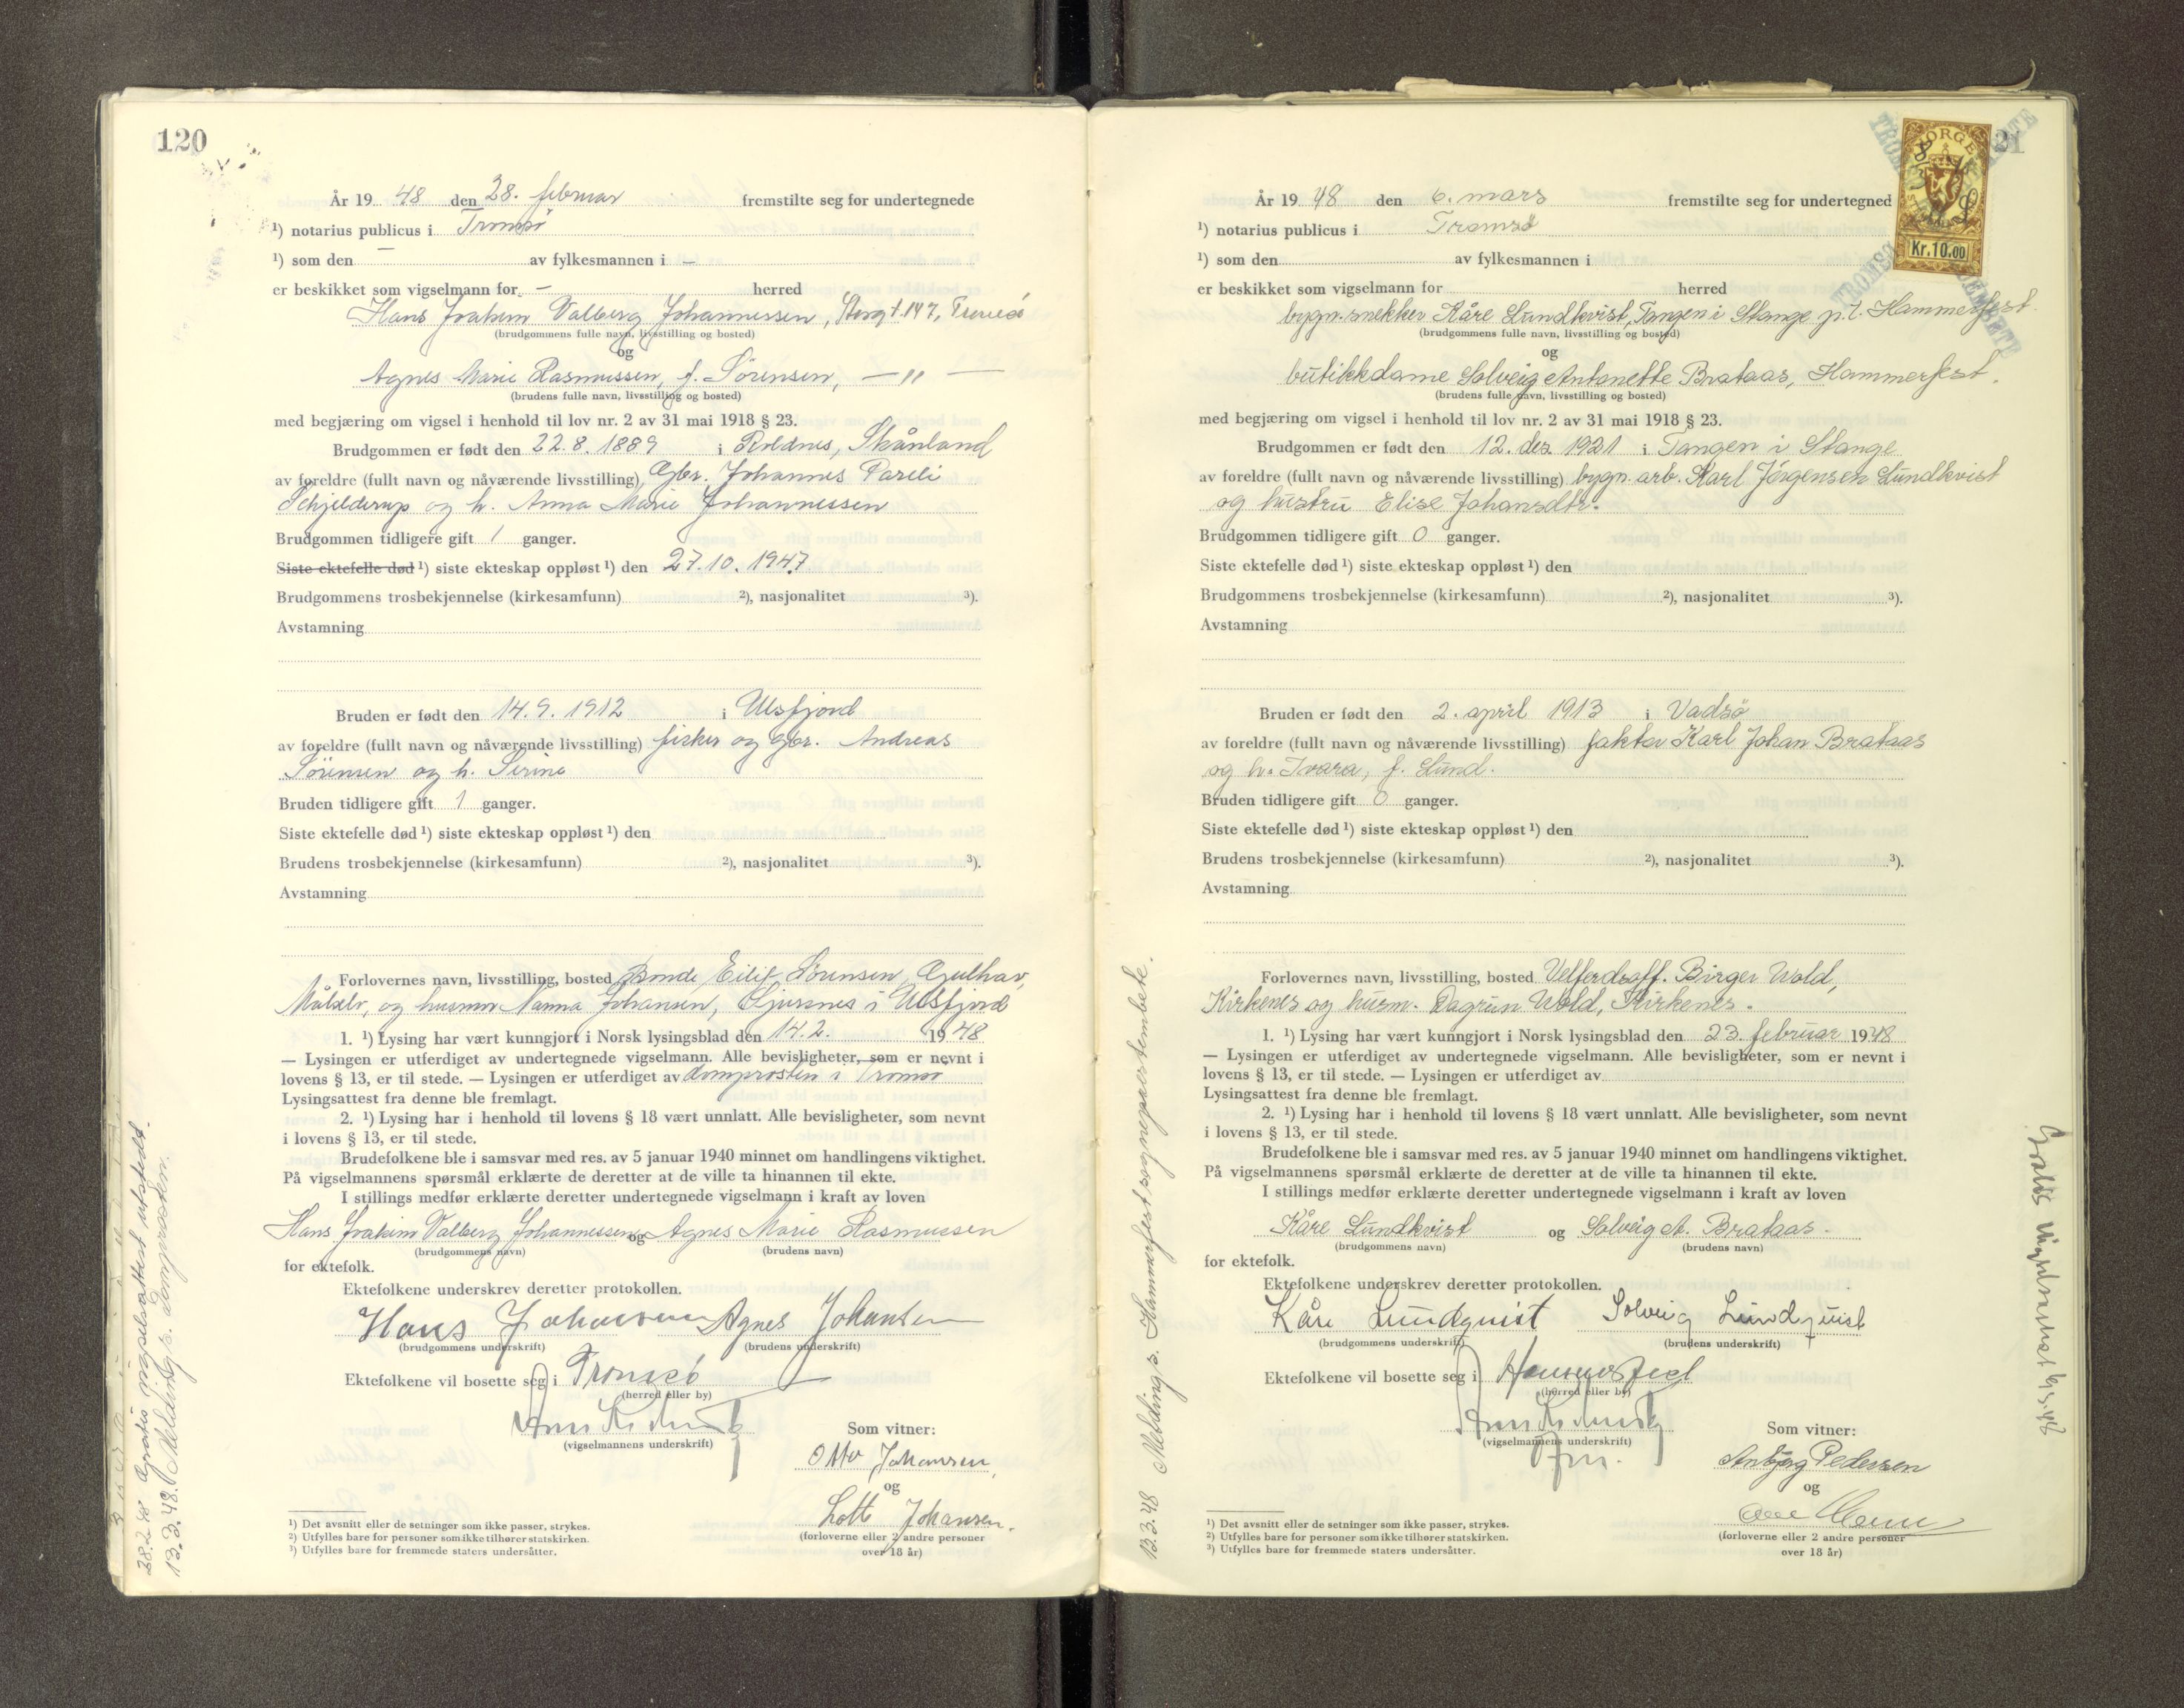 120
År 19 48 den 28. februar fremstilte seg for undertegnede
¹) notarius publicus i Tromsø
¹) som den – av fylkesmannen i –
er beskikket som vigselmann for – herred
Hans Joakim Valberg Johannessen, Storgt. 147, Tromsø
(brudgommens fulle navn, livsstilling og bosted)
og
Agnes Marie Rasmussen, f. Sørensen, — " —
(brudens fulle navn, livsstilling og bosted)
med begjæring om vigsel i henhold til lov nr. 2 av 31 mai 1918 § 23.
Brudgommen er født den 22.8.1889 i Roldnes, Skånland
av foreldre (fullt navn og nåværende livsstilling) Gbr. Johannes Pareli
Schjelderup og h. Anna Marie Johannessen
Brudgommen tidligere gift 1 ganger.
Siste ektefelle død ¹) siste ekteskap oppløst ¹) den 27.10.1947
Brudgommens trosbekjennelse (kirkesamfunn) ²), nasjonalitet ³).
Avstamning
Bruden er født den 14.9.1912 i Ulsfjord
av foreldre (fullt navn og nåværende livsstilling) fisker og gbr. Andreas
Sørensen og h. Serine
Bruden tidligere gift 1 ganger.
Siste ektefelle død ¹) siste ekteskap oppløst ¹) den
Brudens trosbekjennelse (kirkesamfunn) ²), nasjonalitet ³).
Avstamning
Forlovernes navn, livsstilling, bosted Bonde Eilif Sørensen,
Målselv, og husmor Nanna Johansen, Sjursnes i Ulsfjord
1. ¹) Lysing har vært kunngjort i Norsk lysingsblad den 14.2. 1948
— Lysingen er utferdiget av undertegnede vigselmann. Alle bevisligheter, som er nevnt i
lovens § 13, er til stede. — Lysingen er utferdiget av domprosten i Tromsø
Lysingsattest fra denne ble fremlagt.
2. ¹) Lysing har i henhold til lovens § 18 vært unnlatt. Alle bevisligheter, som nevnt
i lovens § 13, er til stede.
Brudefolkene ble i samsvar med res. av 5 januar 1940 minnet om handlingens viktighet.
På vigselmannens spørsmål erklærte de deretter at de ville ta hinannen til ekte.
I stillings medfør erklærte deretter undertegnede vigselmann i kraft av loven
Hans Joakim Valberg Johannessen og Agnes Marie Rasmussen
(brudgommens navn) (brudens navn)
for ektefolk.
Ektefolkene underskrev deretter protokollen.
Hans Johansen Agnes Johansen
(brudgommens underskrift) (brudens underskrift)
Ektefolkene vil bosette seg i Tromsø
(herred eller by)
(vigselmannens underskrift)
Som vitner:
Otto Johansen
og
Lotte Johansen.
(forloverne eller 2 andre personer
over 18 år)
¹) Det avsnitt eller de setninger som ikke passer, strykes.
²) Utfylles bare for personer som ikke tilhører statskirken.
³) Utfylles bare for fremmede staters undersåtter.
28.2.48 Gratis vigselsattest utstedt.
13.3.48. Melding s. domprosten.
21
NORGE
Kr. 10.00
År 19 48 den 6. mars fremstilte seg for undertegned
¹) notarius publicus i Tromsø
¹) som den av fylkesmannen i
er beskikket som vigselmann for herred
bygn.snekker Kåre Lundkvist, Tangen i Stange p.t. Hammerfest.
(brudgommens fulle navn, livsstilling og bosted)
og
butikkdame Solveig Antonette Brataas, Hammerfest.
(brudens fulle navn, livsstilling og bosted)
med begjæring om vigsel i henhold til lov nr. 2 av 31 mai 1918 § 23.
Brudgommen er født den 12. des. 1921 i Tangen i Stange
av foreldre (fullt navn og nåværende livsstilling) bygn. arb. Karl Jørgensen Lundkvist
og hustru Elise Johansdtr.
Brudgommen tidligere gift 0 ganger.
Siste ektefelle død ¹) siste ekteskap oppløst ¹) den
Brudgommens trosbekjennelse (kirkesamfunn) ²), nasjonalitet ³).
Avstamning
Bruden er født den 2. april 1913 i Vadsø
av foreldre (fullt navn og nåværende livsstilling) faktor Karl Johan Brataas
og h. Ivara, f. Lund.
Bruden tidligere gift 0 ganger.
Siste ektefelle død ¹) siste ekteskap oppløst ¹) den
Brudens trosbekjennelse (kirkesamfunn) ²), nasjonalitet ³).
Avstamning
Forlovernes navn, livsstilling, bosted Velferdsoff. Birger Wold,
Kirkenes og husm. Dagrun Wold, Kirkenes.
1. ¹) Lysing har vært kunngjort i Norsk lysingsblad den 23. februar 1948
— Lysingen er utferdiget av undertegnede vigselmann. Alle bevisligheter, som er nevnt i
lovens § 13, er til stede. — Lysingen er utferdiget av
Lysingsattest fra denne ble fremlagt.
2. ¹) Lysing har i henhold til lovens § 18 vært unnlatt. Alle bevisligheter, som nevnt
i lovens § 13, er til stede.
Brudefolkene ble i samsvar med res. av 5 januar 1940 minnet om handlingens viktighet.
På vigselmannens spørsmål erklærte de deretter at de ville ta hinannen til ekte.
I stillings medfør erklærte deretter undertegnede vigselmann i kraft av loven
Kåre Lundkvist og Solveig A. Brataas.
(brudgommens navn) (brudens navn)
for ektefolk.
Ektefolkene underskrev deretter protokollen.
Kåre Lundquist Solveig Lundquist
(brudgommens underskrift) (brudens underskrift)
Ektefolkene vil bosette seg i Hammerfest
(herred eller by)
(vigselmannens underskrift)
Som vitner:
Anbjørg Pedersen
og
(forloverne eller 2 andre personer
over 18 år)
¹) Det avsnitt eller de setninger som ikke passer, strykes.
²) Utfylles bare for personer som ikke tilhører statskirken.
³) Utfylles bare for fremmede staters undersåtter.
13.3.48 Melding s. Hammerfest sogneprestembete.
Gratis vigselsattest